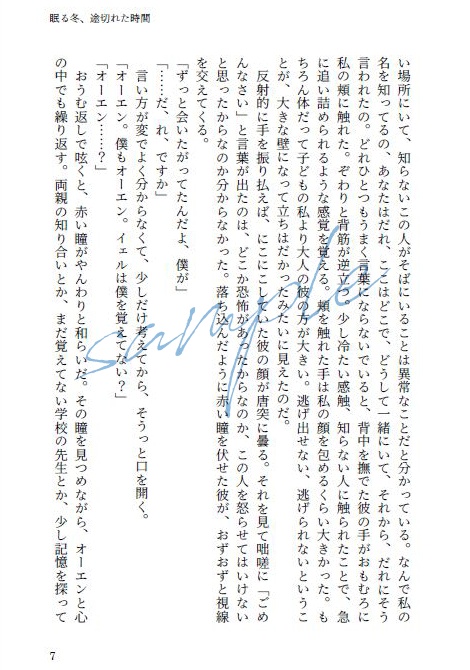 眠る冬、途切れた時間
い場所にいて、知らないこの人がそばにいることは異常なことだと分かっている。なんで私の
名を知ってるの、あなたはだれ、ここはどこで、どうして一緒にいて、それから、だれにそう
言われたの。どれひとつもうまく言葉にならないでいると、背中を撫でた彼の手がおもむろに
私の頬に触れた。ぞわりと背筋が逆立つ。少し冷たい感触、知らない人に触られたことで、急
に追い詰められるような感覚を覚える。頬を触れた手は私の顔を包めるくらい大きかった。も
ちろん体だって子どもの私より大人の彼の方が大きい。逃げ出せない、逃げられないというこ
とが、大きな壁になって立ちはだかったみたいに見えたのだ。
反射的に手を振り払えば、にこにこしていた彼の顔が唐突に曇る。それを見て咄嗟に「ごめ
んなさい」と言葉が出たのは、どこか恐怖があったからなのか、この人を怒らせてはいけない
と思ったからなのか分からなかった。落ち込んだように赤い瞳を伏せた彼が、おずおずと視線
を交えてくる。
「ずっと会いたがってたんだよ、僕が」
「……だ、れ、ですか」
言い方が変でよく分からなくて、少しだけ考えてから、そうっと口を開く。
「オーエン。僕もオーエン。イェルは僕を覚えてない?」
「オーエン……?」
おうむ返しで呟くと、赤い瞳がやんわりと和らいだ。その瞳を見つめながら、オーエンと心
の中でも繰り返す。両親の知り合いとか、まだ覚えてない学校の先生とか、少し記憶を探って
sample
7